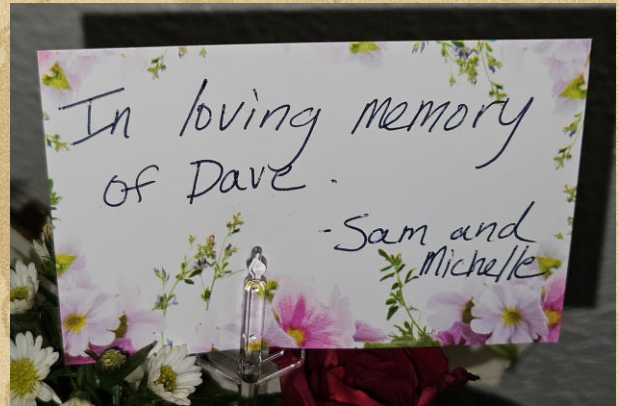 In loving memory
of Dave.
-Sam and
Michelle